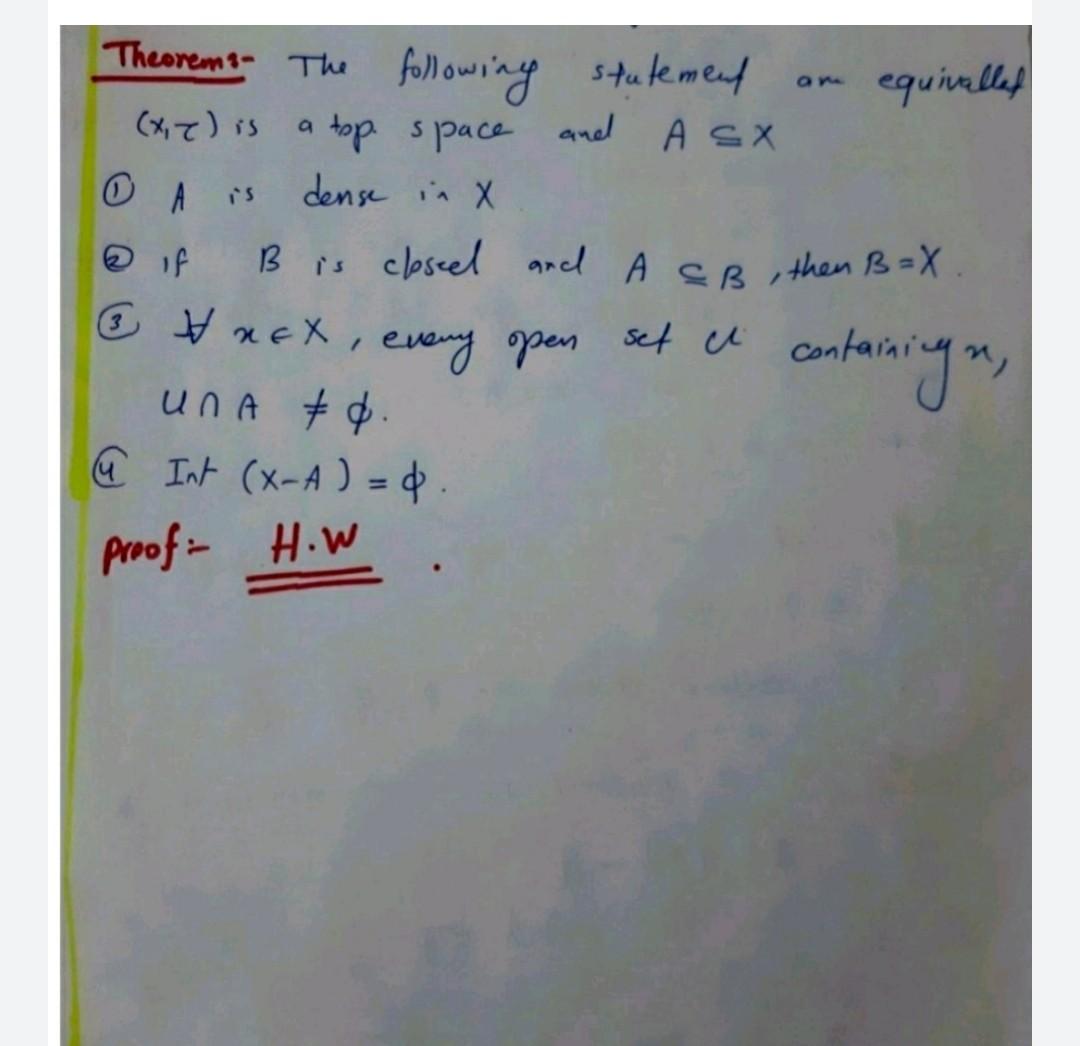 Theorem:- The following statement are equivallet
(X,τ) is a top. space and A ⊆ X
① A is dense in X
② if B is closed and A ⊆ B, then B = X.
③ ∀ x ∈ X, every open set U containing x,
U ∩ A ≠ ϕ.
④ Int (X-A) = ϕ.
proof:- H.W.